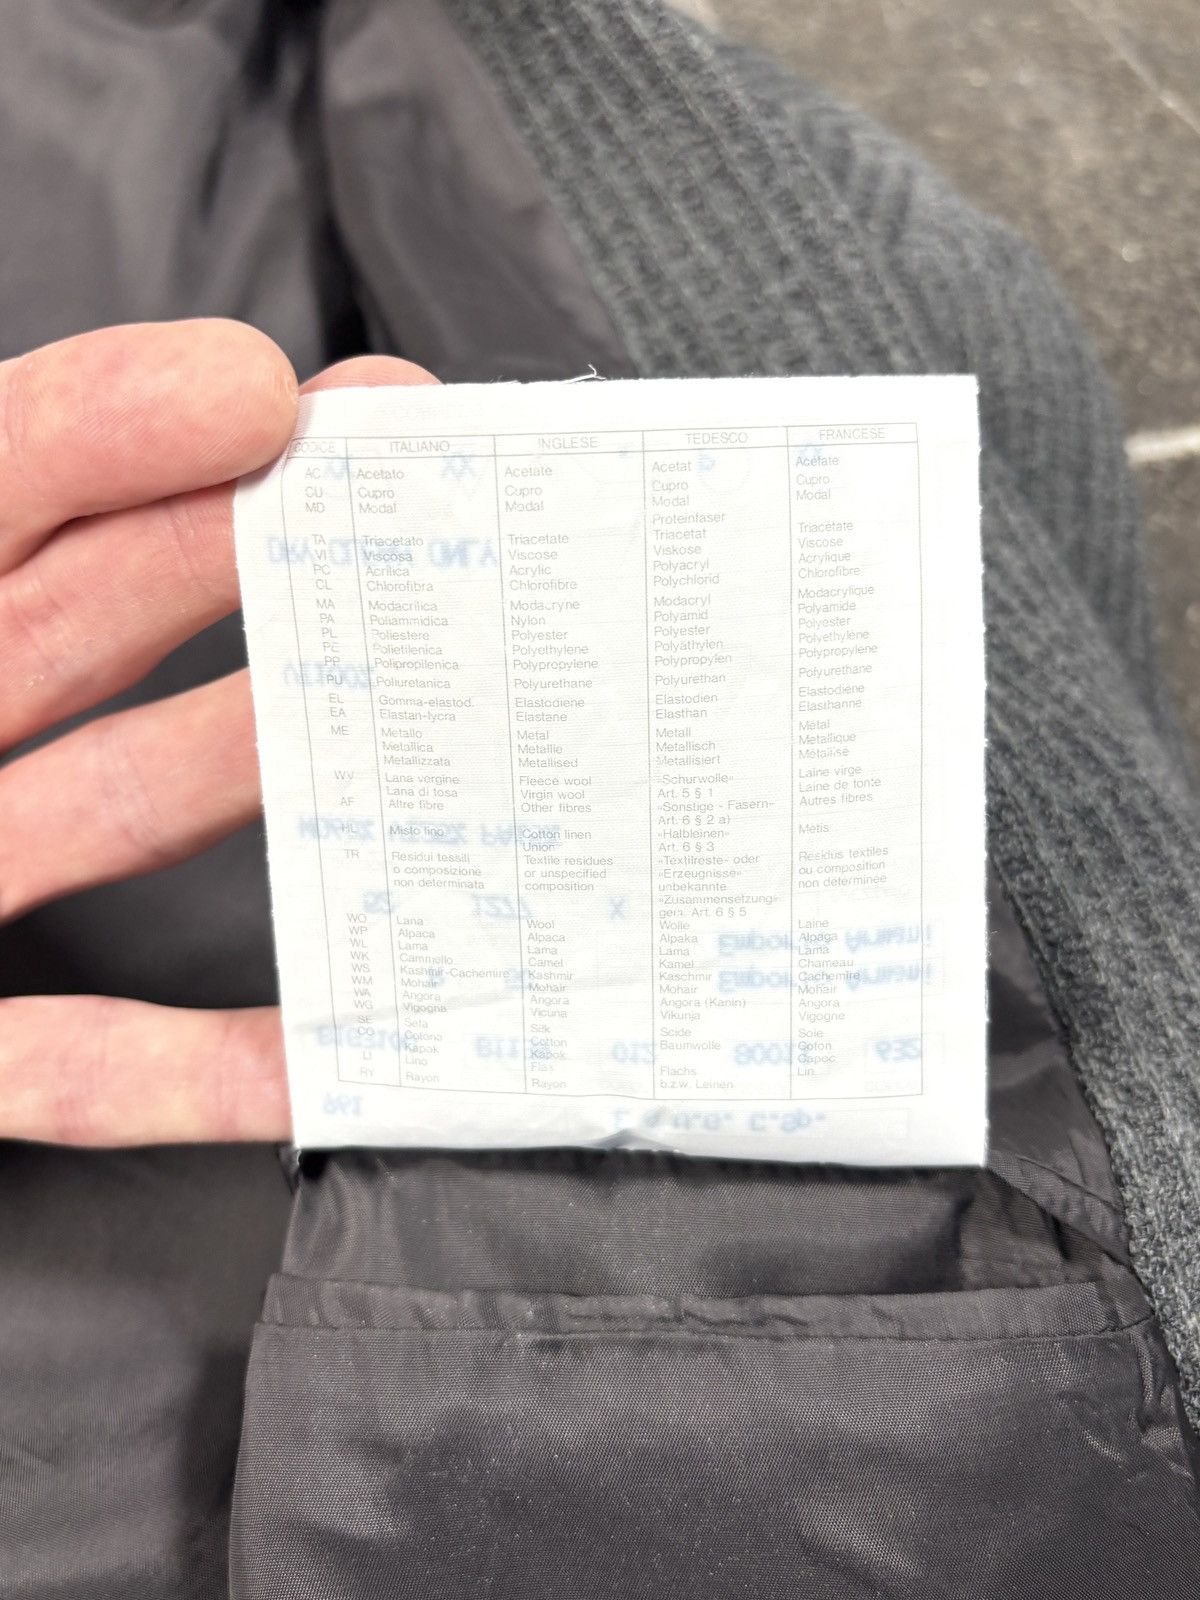 CODICE ITALIANO INGLESE TEDESCO FRANCESE
AC Acetato Acetate Acetat Acétate
CU Cupro Cupro Cupro Cupro
MD Modal Modal Modal Modal
Proteinfaser
TA Triacetato Triacetate Triacetat Triacétate
VI Viscosa Viscose Viskose Viscose
PC Acrilica Acrylic Polyacryl Acrylique
CL Chlorofibra Chlorofibre Polychlorid Chlorofibre
MA Modacrilica Modacryne Modacryl Modacrylique
PA Poliammidica Nylon Polyamid Polyamide
PL Poliestere Polyester Polyester Polyester
PE Polietilenica Polyethylene Polyathylen Polyethylène
PP Polipropilenica Polypropylene Polypropylen Polypropylène
PU Poliuretanica Polyurethane Polyurethan Polyurethane
EL Gomma-elastod. Elastodiene Elastodien Elastodiene
EA Elastan-lycra Elastane Elasthan Elasthanne
ME Metallo Metal Metall Métal
Metallica Metallie Metallisch Metallique
Metallizzata Metallised Metallisiert Métallise
WV Lana vergine Fleece wool «Schurwolle» Laine virge
Lana di tosa Virgin wool Art. 5 § 1 Laine de tonte
AF Altre fibre Other fibres «Sonstige - Fasern» Autres fibres
Art. 6 § 2 a)
HL Misto lino Cotton linen «Halbleinen» Metis
Union Art. 6 § 3
TR Residui tessili Textile residues «Textilreste» oder Residus textiles
o composizione or unspecified «Erzeugnisse» ou composition
non determinata composition unbekannte non determinée
«Zusammensetzung»
gem. Art. 6 § 5
WO Lana Wool Wolle Laine
WP Alpaca Alpaca Alpaka Alpaga
WL Lama Lama Lama Lama
WK Cammello Camel Kamel Chameau
WS Kashmir-Cachemire Kashmir Kaschmir Cachemire
WM Mohair Mohair Mohair Mohair
WA Angora Angora Angora (Kanin) Angora
WG Vigogna Vicuna Vikunja Vigogne
SE Seta Silk Seide Soie
CO Cotone Cotton Baumwolle Coton
Kapok Kapok Capoc
LI Lino Flax Flachs Lin
RY Rayon Rayon b.z.w. Leinen
DRY CLEAN ONLY
Emporio Armani
Emporio Armani